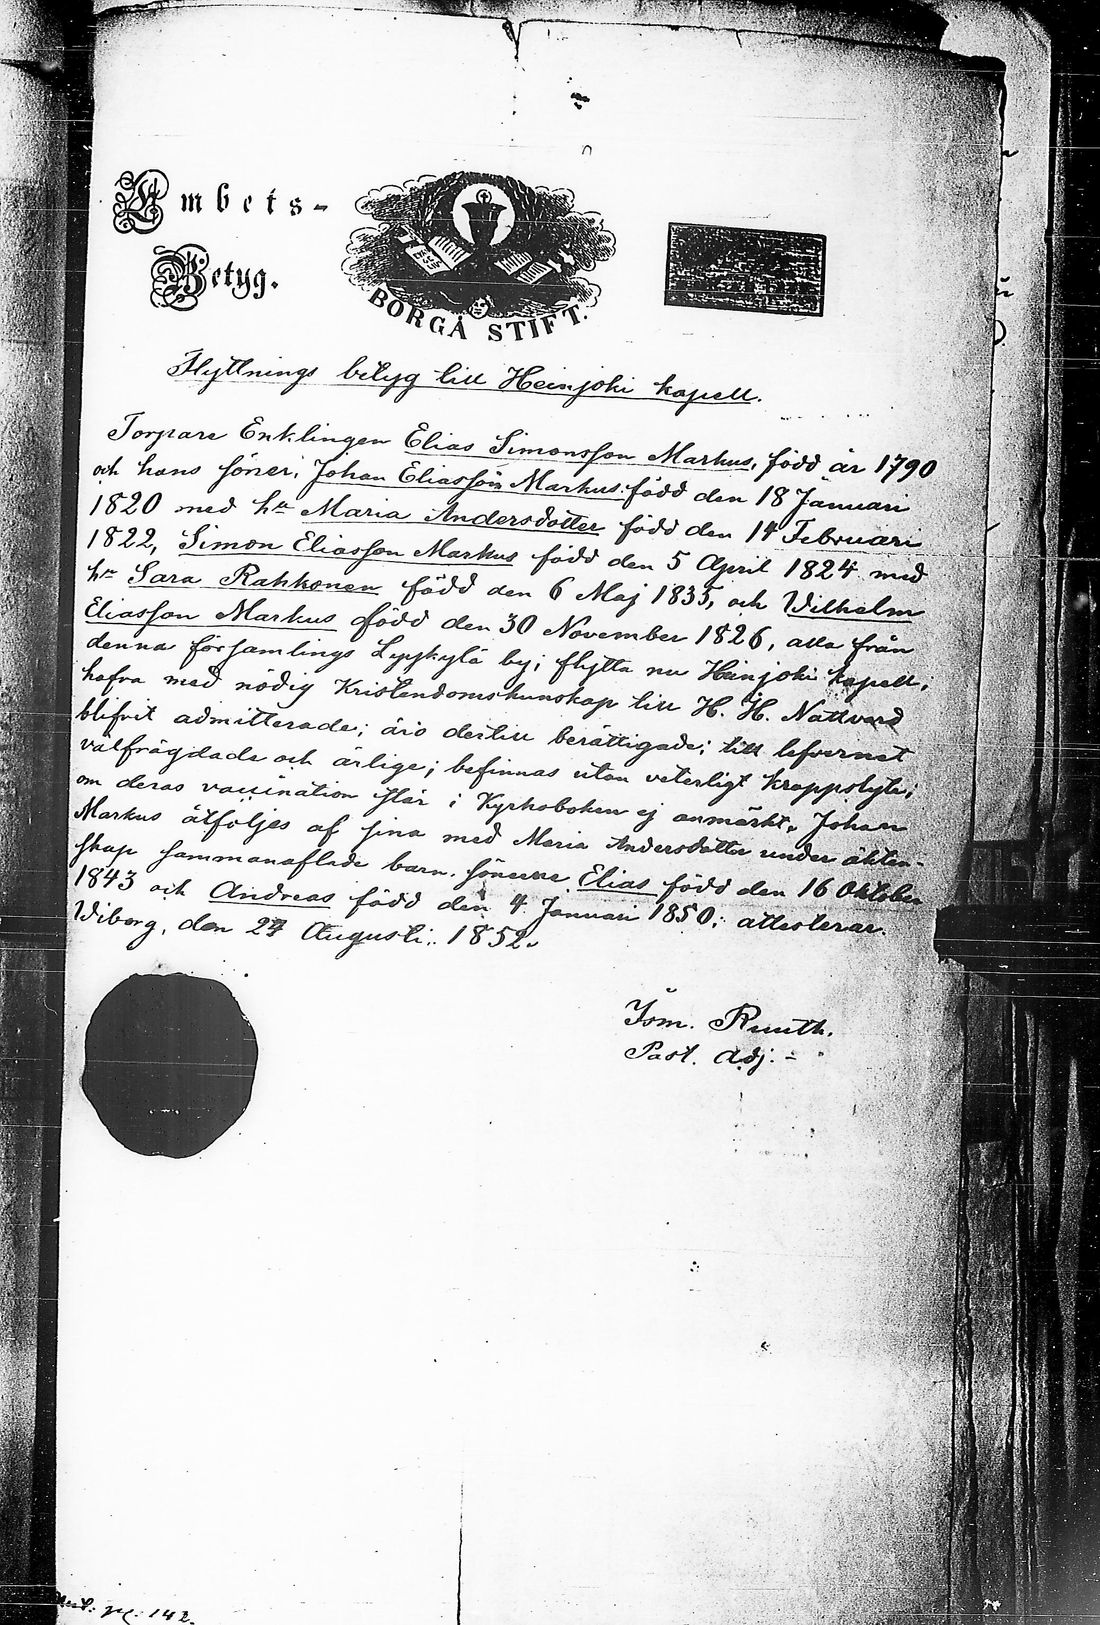 Embets-
Betyg.
BORGÅ STIFT.
Flyttnings betyg till Heinjoki kapell.
Torpare Enklingen Elias Simonsson Markus, född år 1790
och hans söner; Johan Eliasson Markus född den 18 Januari
1820 med hu Maria Andersdotter född den 14 Februari
1822, Simon Eliasson Markus född den 5 April 1824 med
hu Sara Rahkonen född den 6 Maj 1835, och Wilhelm
Eliasson Markus född den 30 November 1826, alla från
denna församlings Lypykylä by; flytta nu Heinjoki kapell;
hafva med nödig Kristendomskunskap till H. H. Nattvard
blifvit admitterade; äro dertill berättigade; till lefvernet
välfrägdade och ärlige; befinnas utan veterligt kroppslyte;
om deras vaccination står i Kyrkoboken ej anmärkt. Johan
Markus åtföljes af sina med Maria Andersdotter under äkten-
skap sammanaflede barn. sönerne Elias född den 16 Oktober
1843 och Andreas född den 4 Januari 1850; attesterar.
Wiborg, den 27 Augusti. 1852.
Ism. Ruuth.
Past. Adj. -
142.